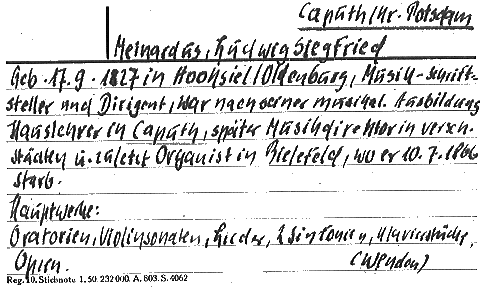 Caputh/Kr. Potsdam
Meinardus, Ludwig Siegfried
Geb. 17.9.1827 in Hooksiel/Oldenburg, Musik-Schrift-
steller und Dirigent, war nach seiner musikal. Ausbildung
Hauslehrer in Caputh, später Musikdirektor in versch.
Städten u. zuletzt Organist in Bielefeld, wo er 10.7.1866
starb.
Hauptwerke:
Oratorien, Violinsonaten, Lieder, 2 Sinfonien, Klavierstücke,
Opern. (Weydon)
Reg. 10. Stichnote 1. 50. 232000. A. 803. S. 4062